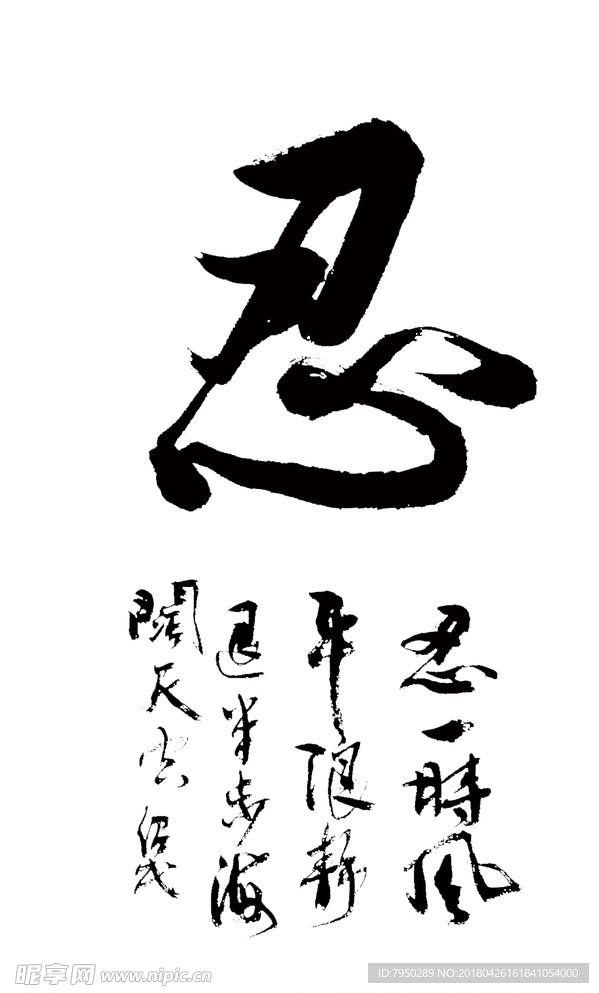 忍
忍一時風
平浪静
退半步海
闊天空
昵享网 www.nipic.cn
ID:7950289 NO:20180426161841054000